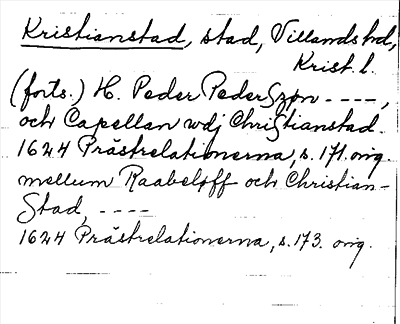 Kristianstad, stad, Villands hd,
Krist. l.
(forts.) H. Peder PederSzøn ----,
och Capellan wdj ChriStianstad.
1624 Prästrelationerna, s. 171. orig.
mellum Raabeløff och Christian-
Stad, ----
1624 Prästrelationerna, s. 173. orig.